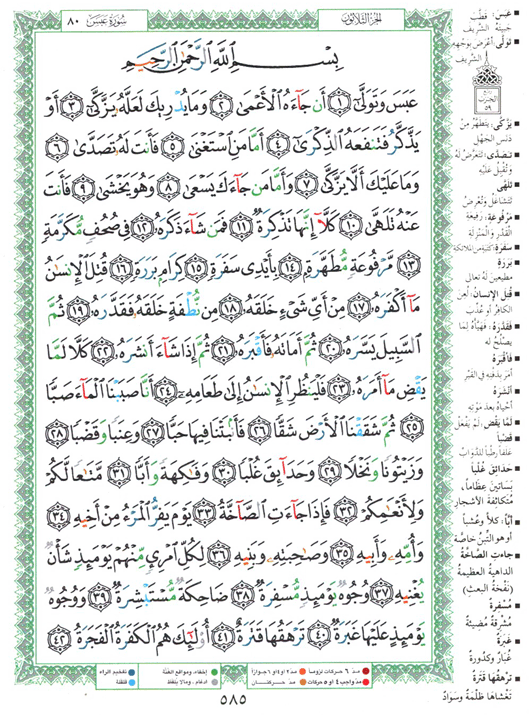 الجزء الثلاثون
سورة عبس ٨٠
بِسْمِ اللَّهِ الرَّحْمَٰنِ الرَّحِيمِ
عَبَسَ وَتَوَلَّىٰٓ ١ أَن جَآءَهُ ٱلْأَعْمَىٰ ٢ وَمَا يُدْرِيكَ لَعَلَّهُۥ يَزَّكَّىٰٓ ٣ أَوْ
يَذَّكَّرُ فَتَنفَعَهُ ٱلذِّكْرَىٰٓ ٤ أَمَّا مَنِ ٱسْتَغْنَىٰ ٥ فَأَنتَ لَهُۥ تَصَدَّىٰ ٦
وَمَا عَلَيْكَ أَلَّا يَزَّكَّىٰ ٧ وَأَمَّا مَن جَآءَكَ يَسْعَىٰ ٨ وَهُوَ يَخْشَىٰ ٩ فَأَنتَ
عَنْهُ تَلَهَّىٰ ١٠ كَلَّآ إِنَّهَا تَذْكِرَةٌ ١١ فَمَن شَآءَ ذَكَرَهُۥ ١٢ فِي صُحُفٍ مُّكَرَّمَةٍ
١٣ مَّرْفُوعَةٍ مُّطَهَّرَةٍۭ ١٤ بِأَيْدِي سَفَرَةٍ ١٥ كِرَامٍۭ بَرَرَةٍ ١٦ قُتِلَ ٱلْإِنسَٰنُ
مَآ أَكْفَرَهُۥ ١٧ مِنْ أَيِّ شَيْءٍ خَلَقَهُۥ ١٨ مِن نُّطْفَةٍ خَلَقَهُۥ فَقَدَّرَهُۥ ١٩ ثُمَّ
ٱلسَّبِيلَ يَسَّرَهُۥ ٢٠ ثُمَّ أَمَاتَهُۥ فَأَقْبَرَهُۥ ٢١ ثُمَّ إِذَا شَآءَ أَنشَرَهُۥ ٢٢ كَلَّا لَمَّا
يَقْضِ مَآ أَمَرَهُۥ ٢٣ فَلْيَنظُرِ ٱلْإِنسَٰنُ إِلَىٰ طَعَامِهِۦٓ ٢٤ أَنَّا صَبَبْنَا ٱلْمَآءَ صَبًّا
٢٥ ثُمَّ شَقَقْنَا ٱلْأَرْضَ شَقًّا ٢٦ فَأَنۢبَتْنَا فِيهَا حَبًّا ٢٧ وَعِنَبًا وَقَضْبًا ٢٨
وَزَيْتُونًا وَنَخْلًا ٢٩ وَحَدَآئِقَ غُلْبًا ٣٠ وَفَٰكِهَةً وَأَبًّا ٣١ مَّتَٰعًا لَّكُمْ
وَلِأَنْعَٰمِكُمْ ٣٢ فَإِذَا جَآءَتِ ٱلصَّآخَّةُ ٣٣ يَوْمَ يَفِرُّ ٱلْمَرْءُ مِنْ أَخِيهِ ٣٤
وَأُمِّهِۦ وَأَبِيهِ ٣٥ وَصَٰحِبَتِهِۦ وَبَنِيهِ ٣٦ لِكُلِّ ٱمْرِئٍ مِّنْهُمْ يَوْمَئِذٍ شَأْنٌ
يُغْنِيهِ ٣٧ وُجُوهٌ يَوْمَئِذٍ مُّسْفِرَةٌ ٣٨ ضَاحِكَةٌ مُّسْتَبْشِرَةٌ ٣٩ وَوُجُوهٌ
يَوْمَئِذٍ عَلَيْهَا غَبَرَةٌ ٤٠ تَرْهَقُهَا قَتَرَةٌ ٤١ أُو۟لَٰٓئِكَ هُمُ ٱلْكَفَرَةُ ٱلْفَجَرَةُ ٤٢
عَبَسَ: قَطَّب
جبينه الشريف
تولّى: أعرض بوجهه
الشريف
يزّكّى: يتطهّر من
دنس الجهل
تصدّى: تتعرّض له
وتُقبل عليه
تلهّى
تتشاغل وتُعرض
مرفوعة: رفيعة
القدر والمنزلة
سفرة: كتبة من الملائكة
بررة
مطيعين له تعالى
قُتل الإنسان: لُعن
الكافر أو عُذّب
فقدّره: فهيّأه لما
يصلح له
فأقبره
أمر بدفنه في القبر
أنشره
أحياه بعد موته
لمّا يقض: لم يفعل
قضبا
علفا رطبا للدواب
حدائق غُلبا
بساتين عظاما،
متكاثفة الأشجار
أبّا: كلأ وعشبا
أو هو التبن خاصّة
جاءت الصّاخّة
الداهية العظيمة
(نفخة البعث)
مسفرة
مشرقة مضيئة
غبرة
غبار وكدورة
ترهقها قترة
تغشاها ظلمة وسواد
مدّ ٦ حركات لزوماً
مدّ ٢ أو ٤ أو ٦ جوازاً
إخفاء، ومواقع الغُنّة
تفخيم الراء
مدّ واجب ٤ أو ٥ حركات
مدّ حركتان
إدغام، وما لا يُلفظ
قلقلة
٥٨٥